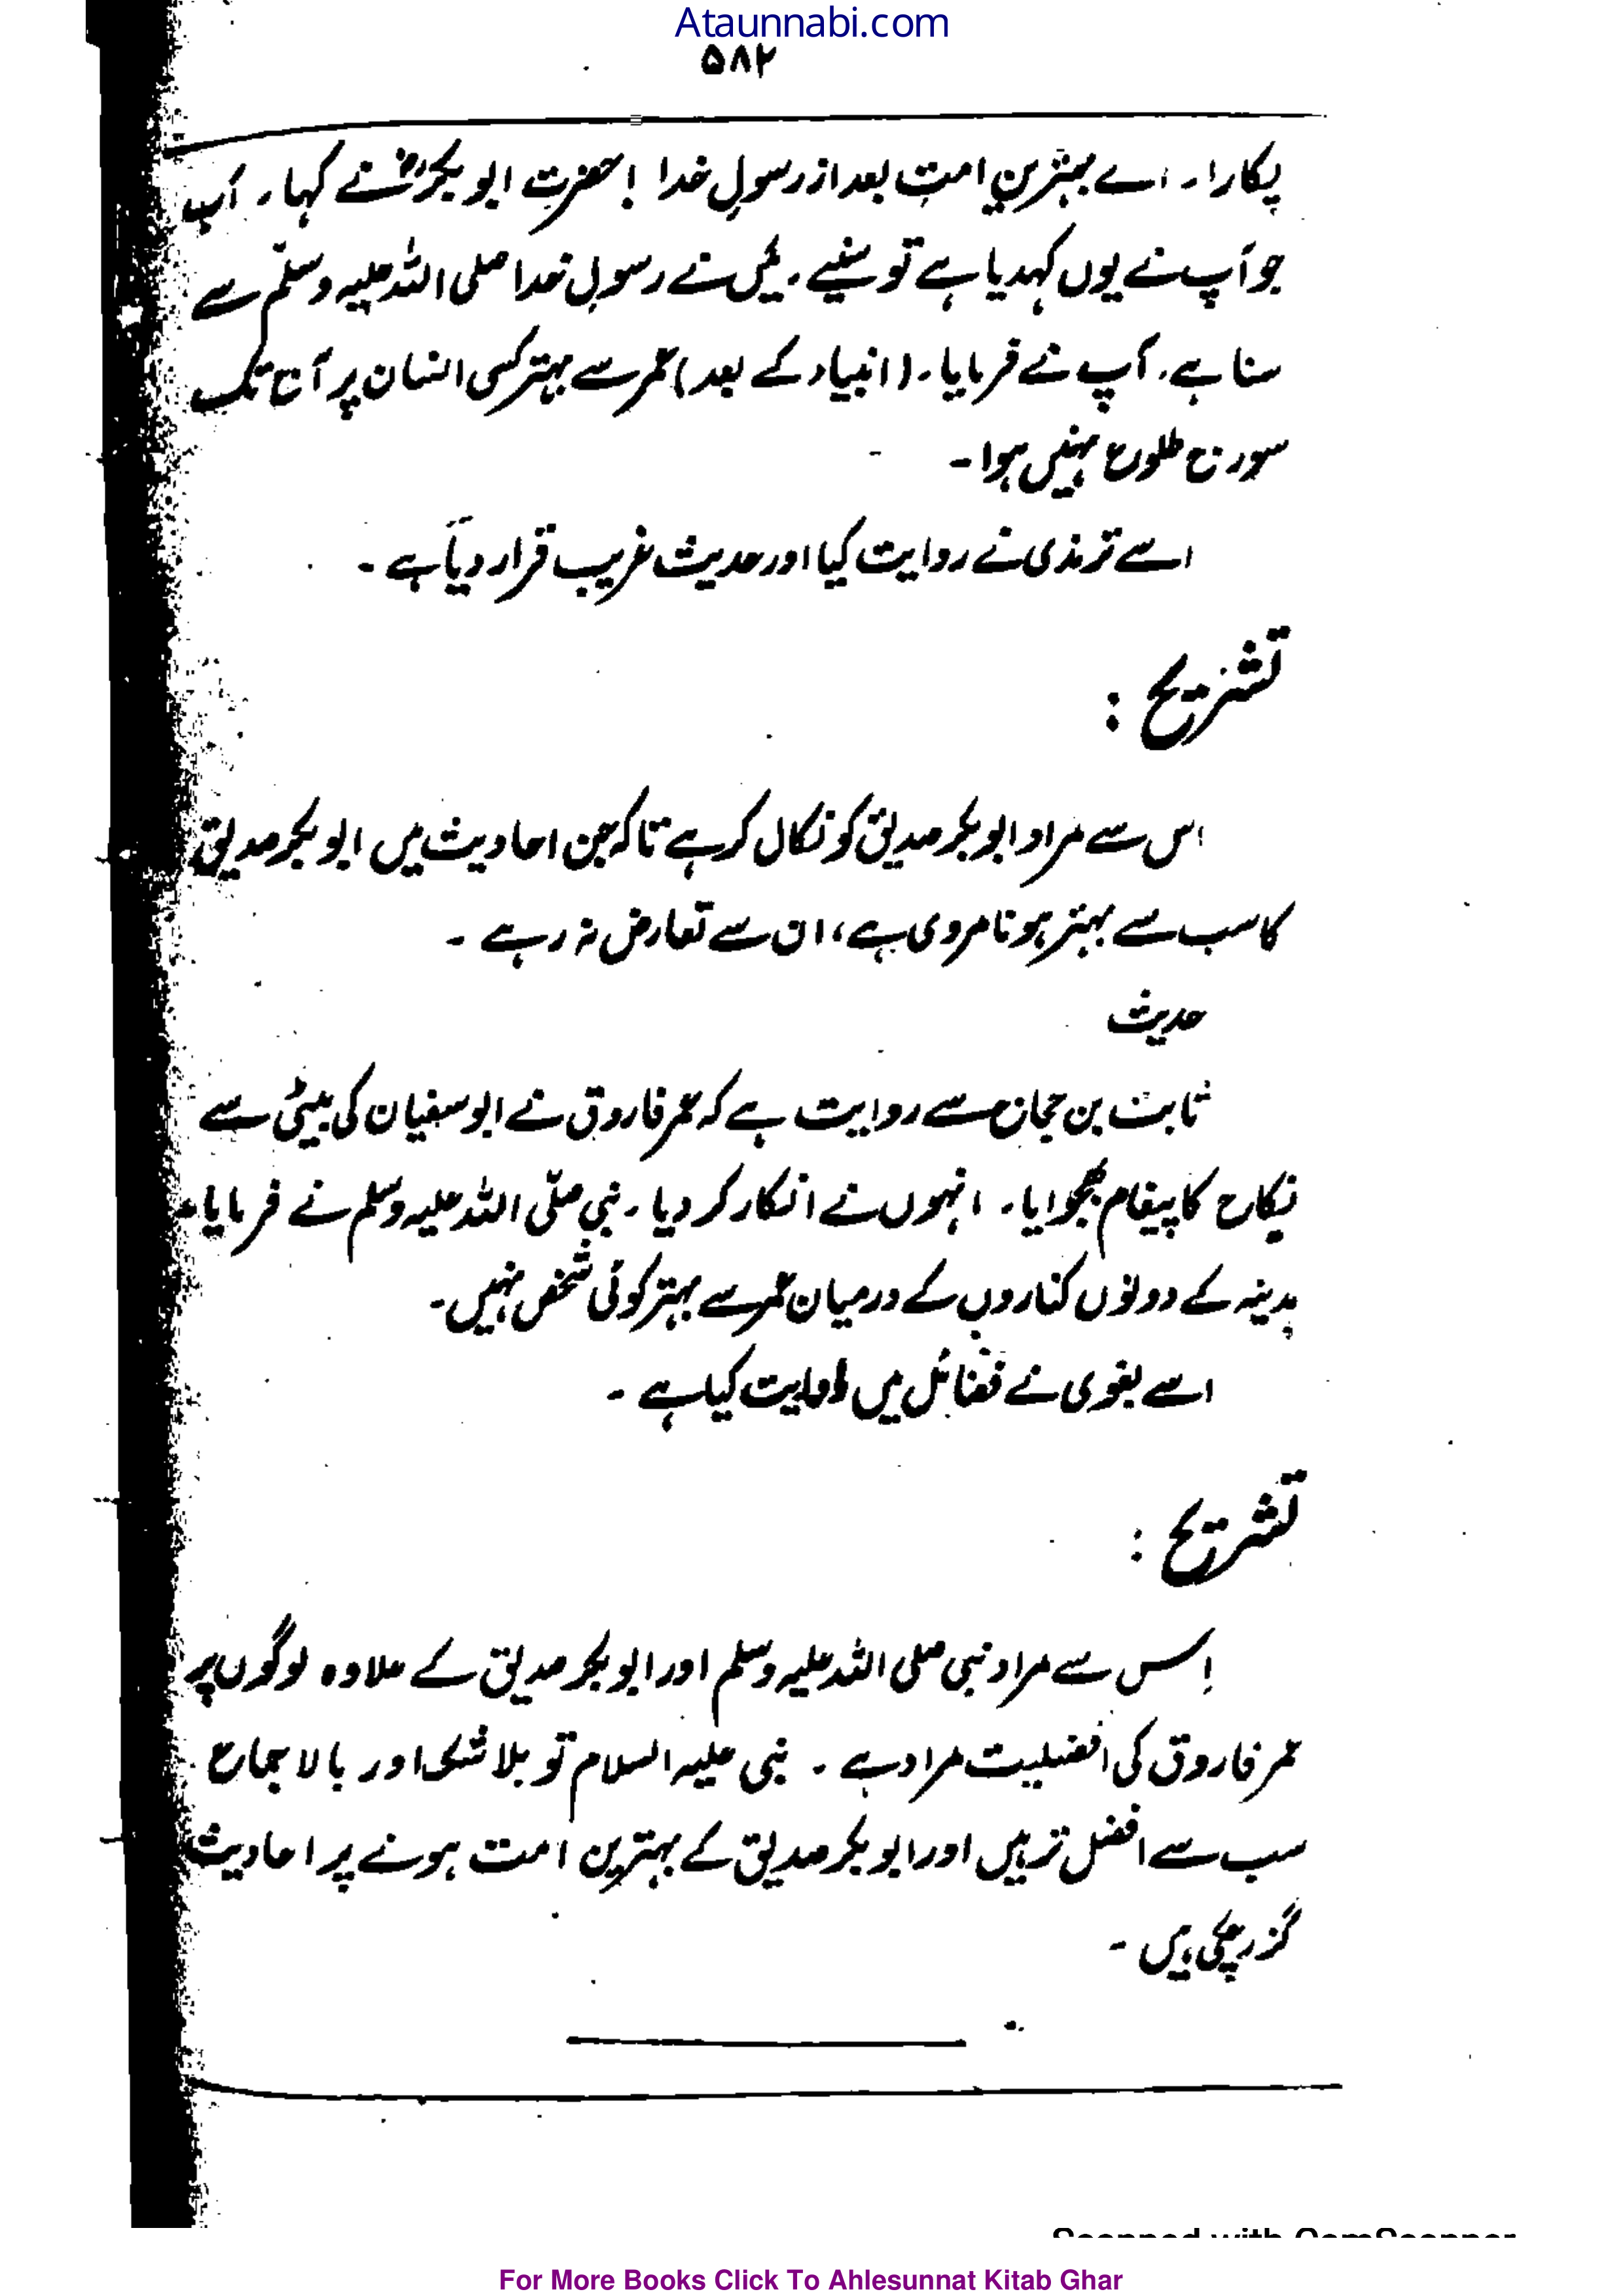 Ataunnabi.com
۵۸۲
پکارا۔ اے بہترین امت بعد از رسولِ خدا ! حضرت ابو بکرؓ نے کہا۔ اب
جو آپ نے یوں کہدیا ہے تو سنیے۔ میں نے رسولِ خدا صلی اللہ علیہ وسلّم سے
سنا ہے۔ آپ نے فرمایا۔ (انبیاء کے بعد) عمر سے بہتر کسی انسان پر آج تک
سورج طلوع نہیں ہوا۔
اسے ترمذی نے روایت کیا اور حدیث غریب قرار دیا ہے۔
تشریح :
اس سے مراد ابو بکر صدیق کو نکال کر ہے تاکہ جن احادیث میں ابو بکر صدیق
کا سب سے بہتر ہونا مروی ہے، ان سے تعارض نہ رہے۔
حدیث
ثابت بن حجاج سے روایت ہے کہ عمر فاروق نے ابو سفیان کی بیٹی سے
نکاح کا پیغام بھجوایا۔ انہوں نے انکار کر دیا۔ نبی صلّی اللہ علیہ وسلم نے فرمایا۔
مدینہ کے دونوں کناروں کے درمیان عمر سے بہتر کوئی شخص نہیں۔
اسے بغوی نے فضائل میں روایت کیا ہے۔
تشریح :
اِس سے مراد نبی صلی اللہ علیہ وسلم اور ابو بکر صدیق کے علاوہ لوگوں پر
عمر فاروق کی افضلیت مراد ہے۔ نبی علیہ السلام تو بلا شک اور بالا جماع
سب سے افضل تر ہیں اور ابو بکر صدیق کے بہترین امت ہونے پر احادیث
گزر چکی ہیں۔
Scanned with CamScanner
For More Books Click To Ahlesunnat Kitab Ghar